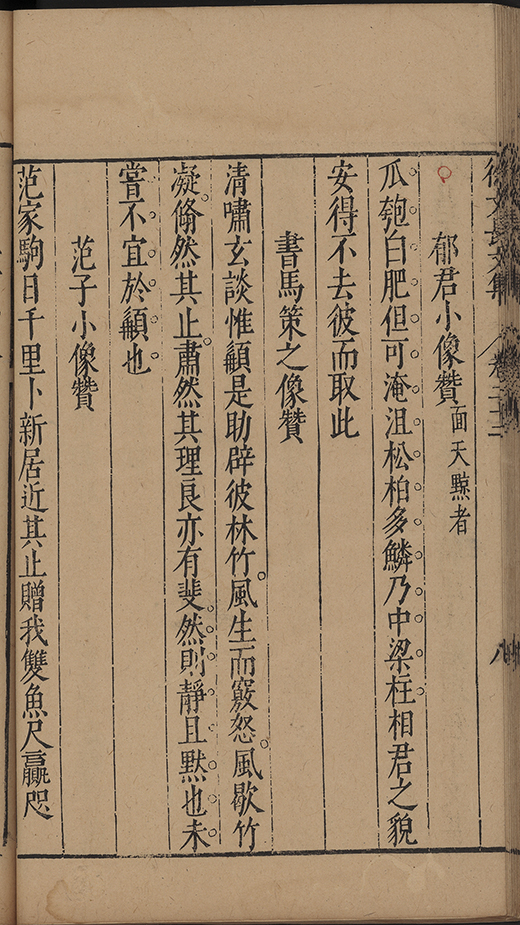 徐文長文集 卷二十二 八
郁君小像贊面天㸃者
瓜匏白肥但可淹沮松柏多鱗乃中梁柱相君之貌
安得不去彼而取此
書馬策之像贊
清嘯玄談惟顓是助辟彼林竹風生而竅怒風歇竹
凝翛然其止肅然其理良亦有斐然則靜且默也未
嘗不宜於顓也
范子小像贊
范家駒日千里卜新居近其止贈我雙魚尺贏咫